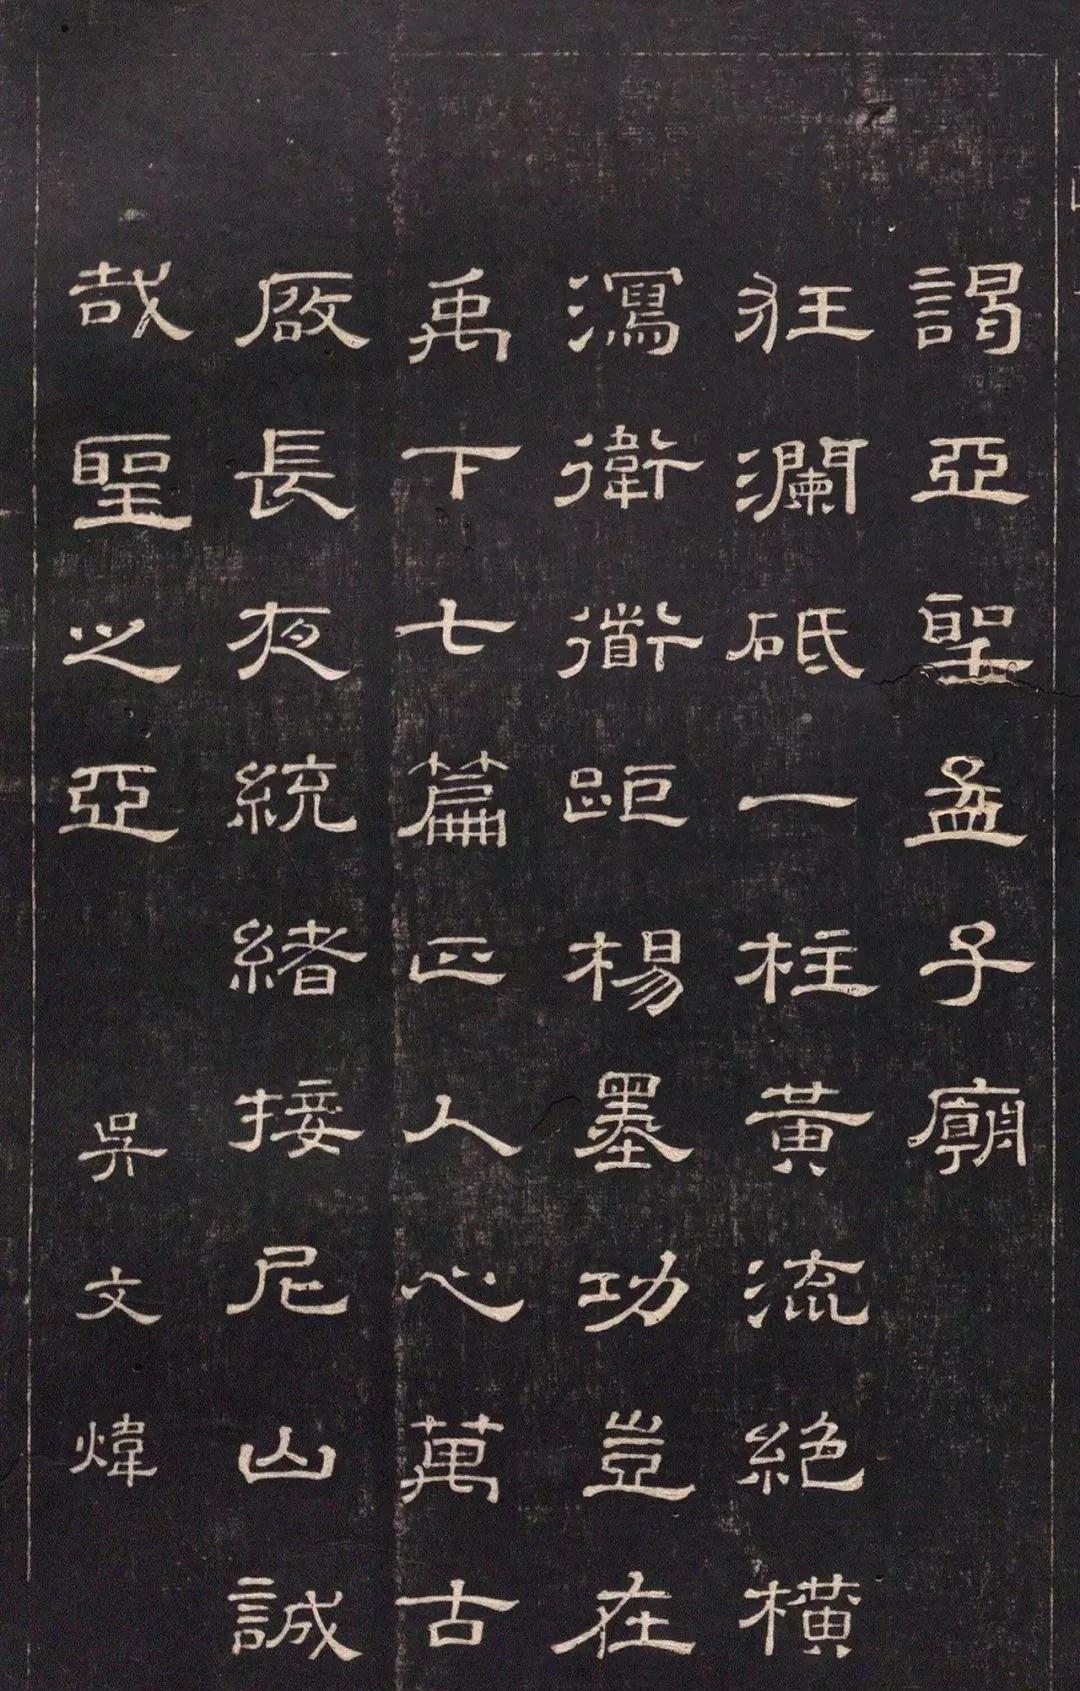 謁亞聖孟子廟
狂瀾砥一柱黃流絕橫
瀉衛衜距楊墨功豈在
禹下七篇正人心萬古
啟長夜統緒接尼山誠
哉聖之亞
吳文煒